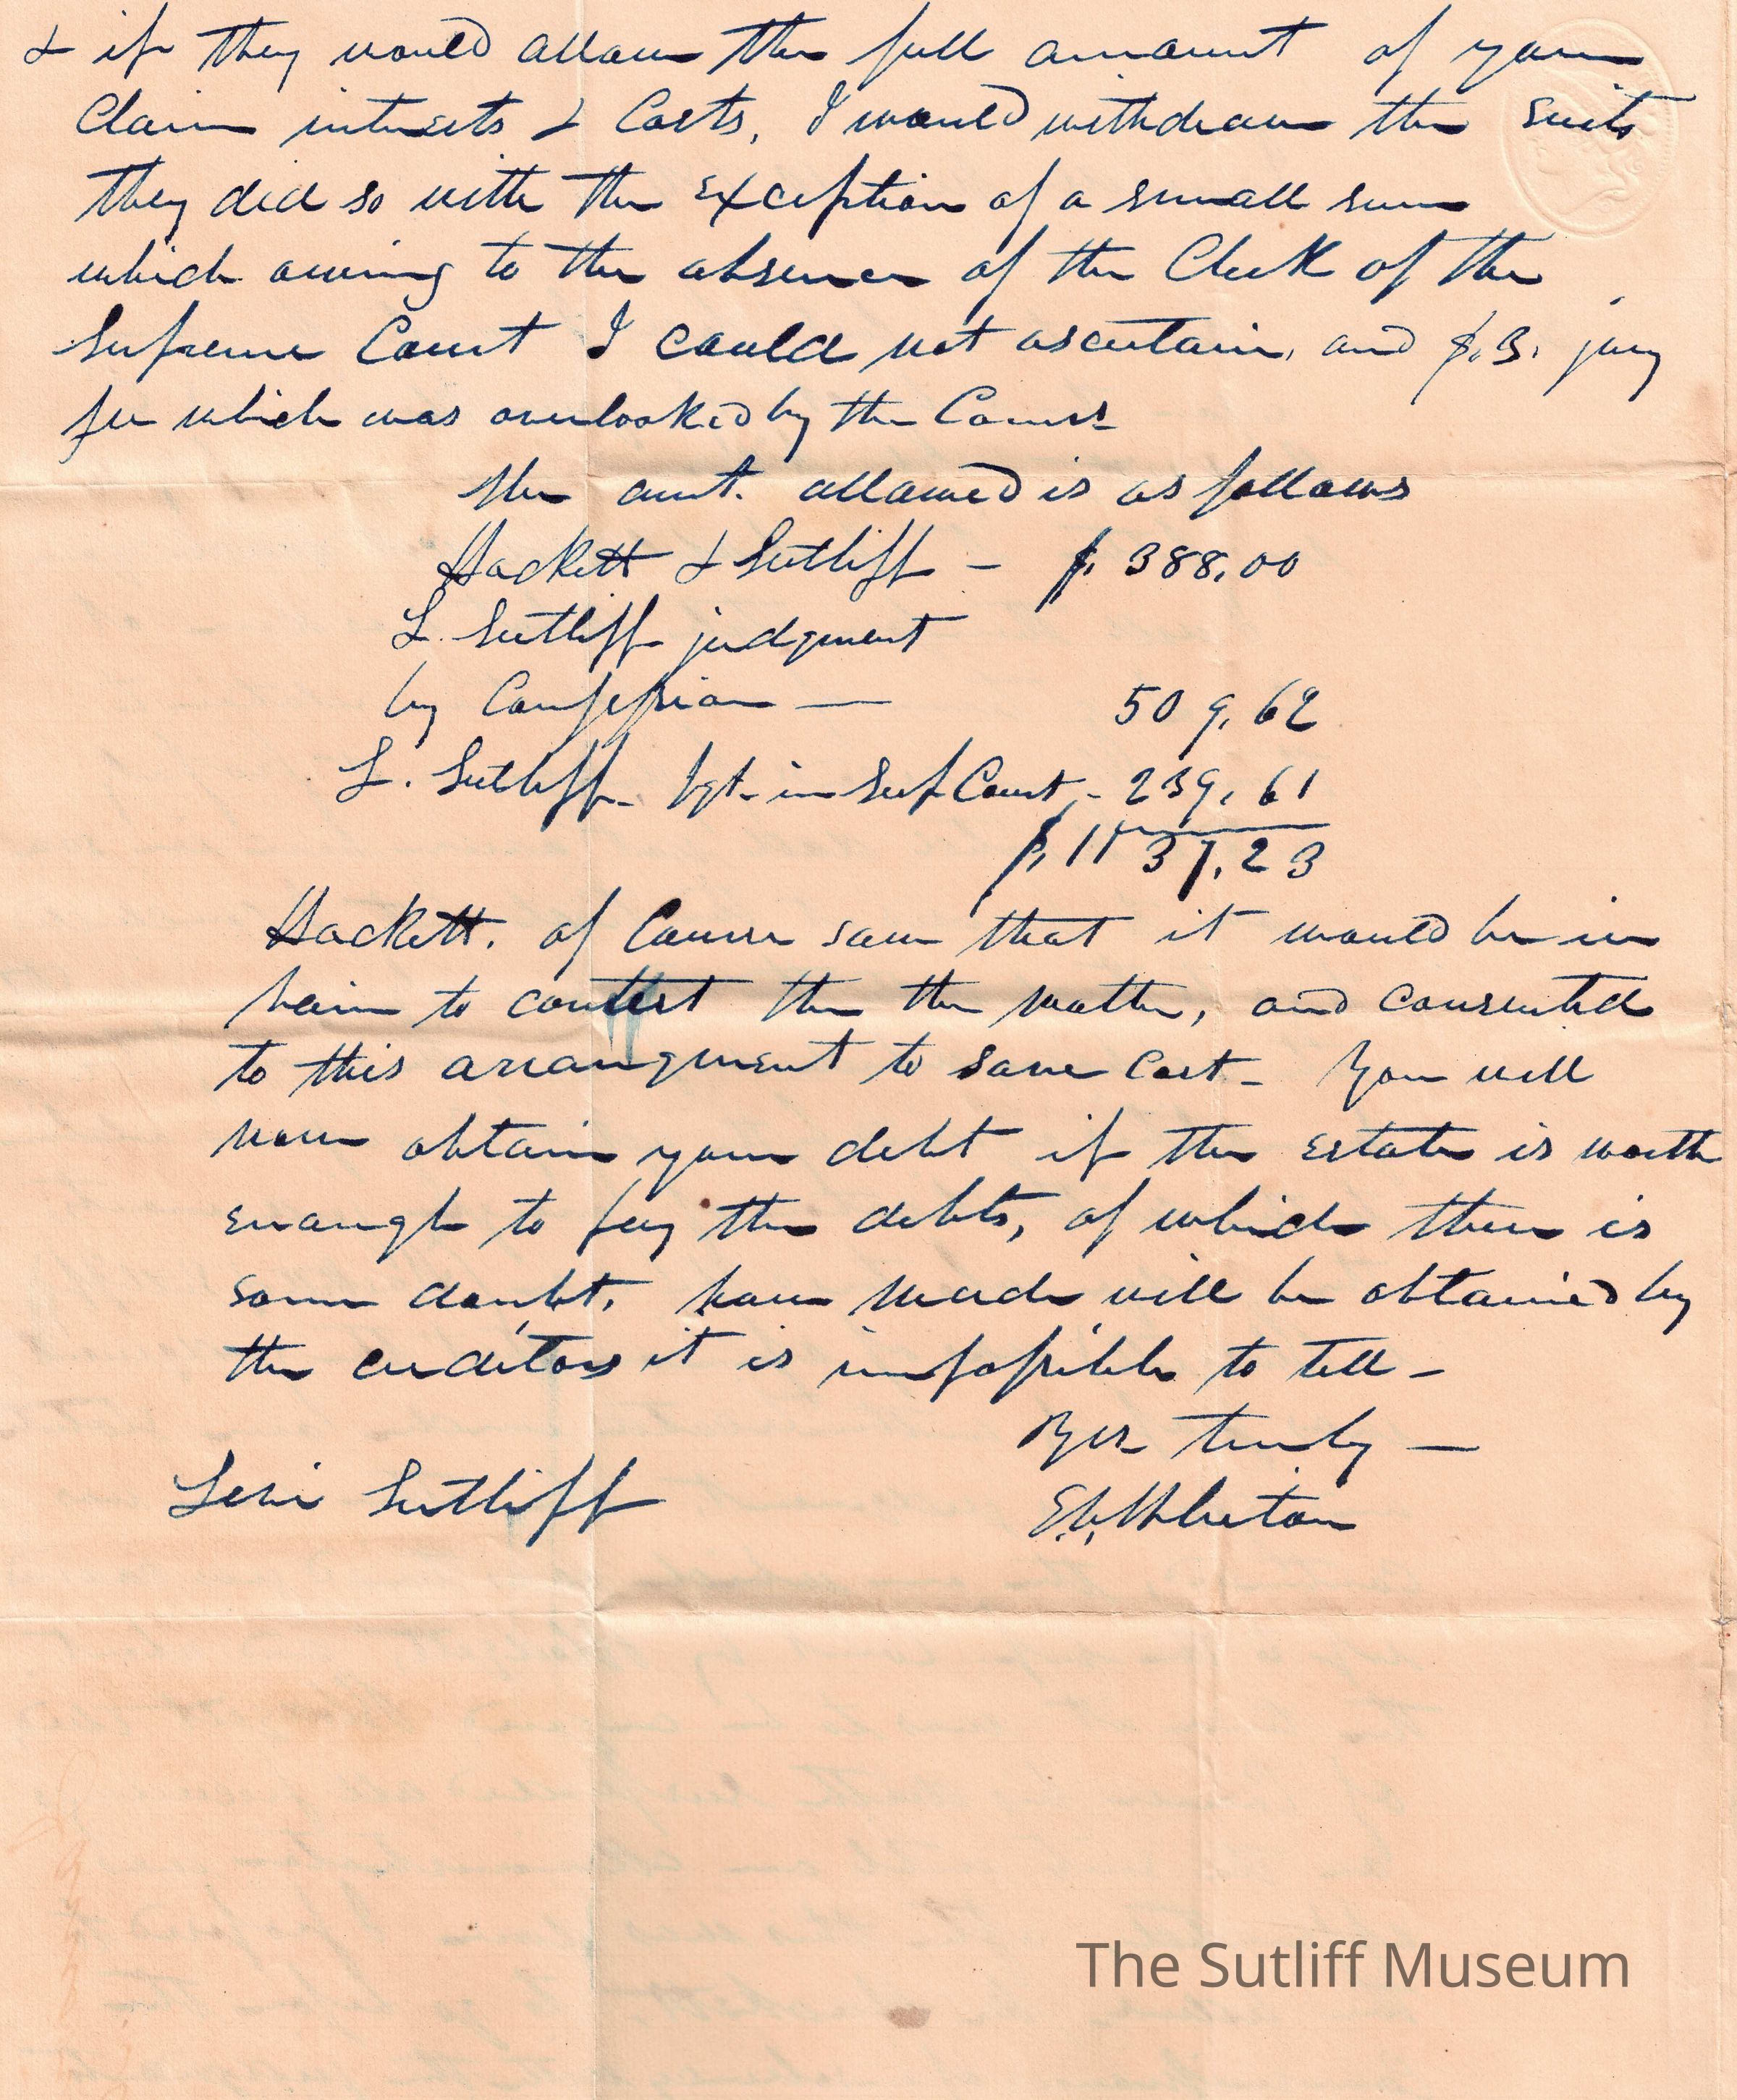 & if they would allow the full amount of your
Claim interests & Costs, I would withdraw the suits
they did so with the exception of a small sum
which owing to the absence of the Clerk of the
Supreme Court I could not ascertain, and $.3. jury
fee which was overlooked by the Comrs
The amt. allowed is as follows
Hackett & Sutliff - $. 388.00
L. Sutliff judgment
by Confession — 509.62
L. Sutliff - Jgt. in Sup Court - 239.61
$. 1137.23
Hackett. of Course saw that it would be in
vain to contest the the matter, and consented
to this arrangment to save Cost - You will
now obtain your debt if the estate is worth
enough to pay the debts, of which there is
some doubt. how much will be obtained by
the creditors it is impossible to tell -
Yrs truly —
Levi Sutliff
The Sutliff Museum